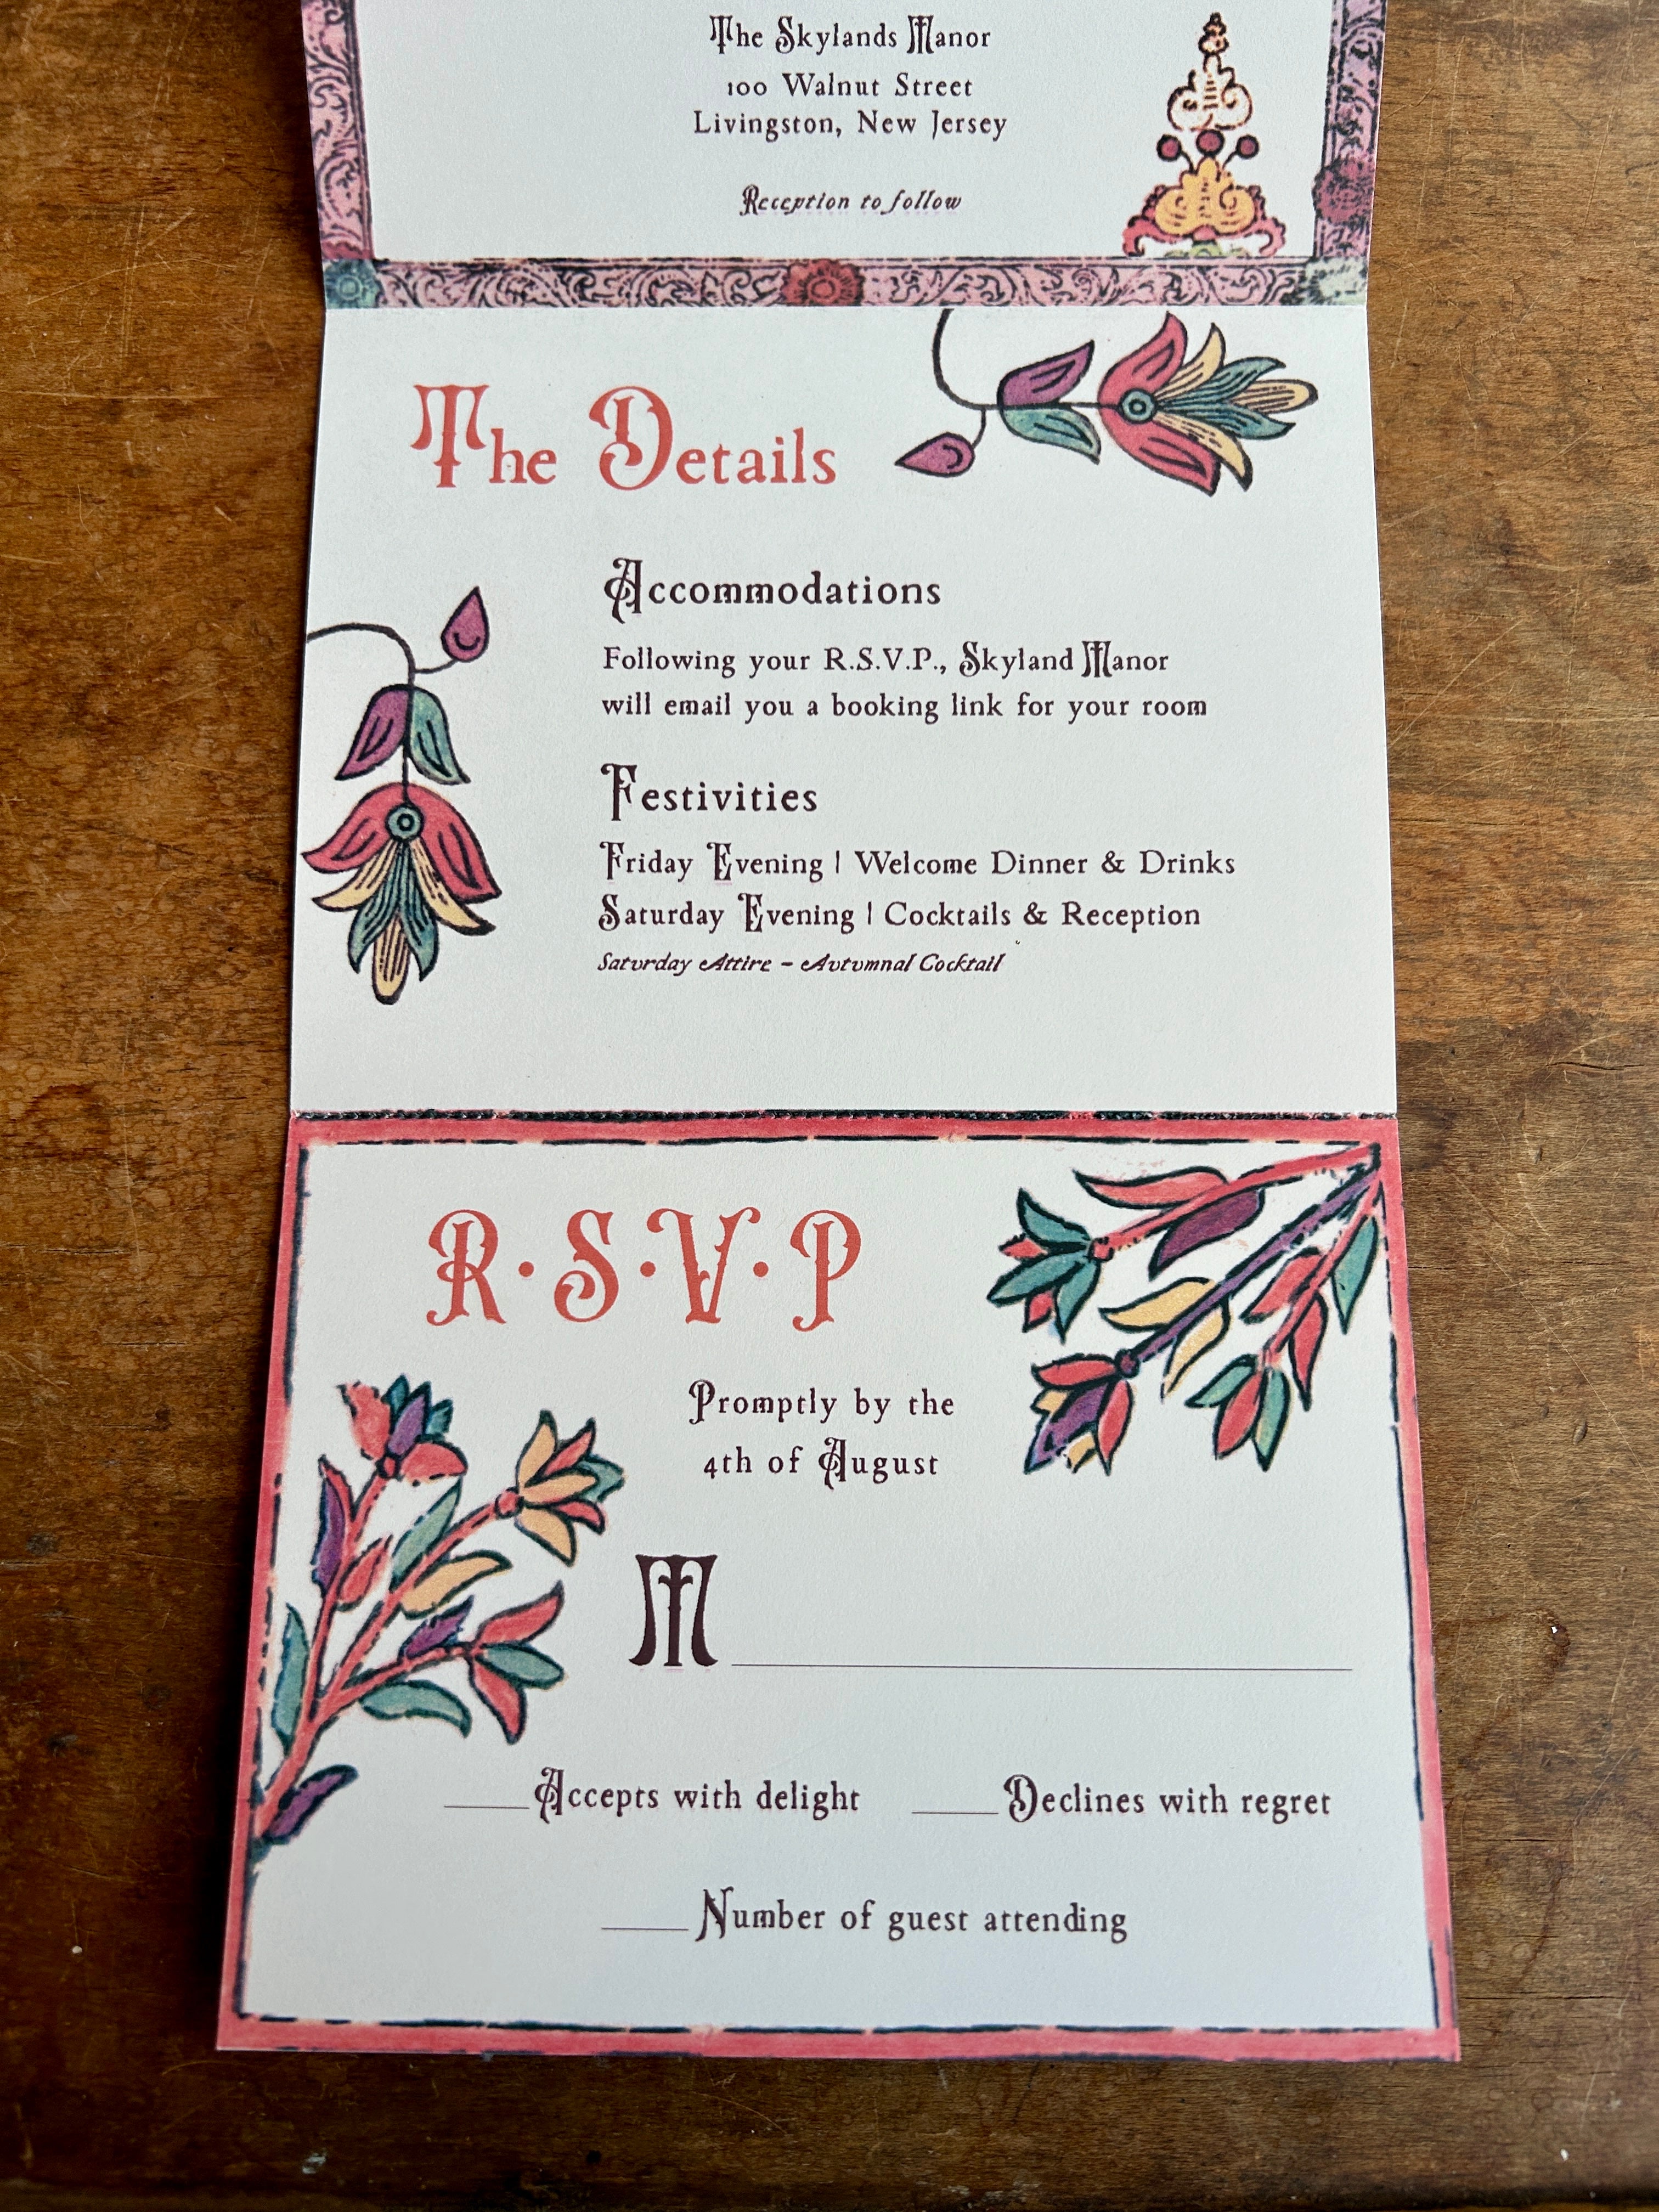 The Skylands Manor
100 Walnut Street
Livingston, New Jersey
Reception to follow
The Details
Accommodations
Following your R.S.V.P., Skyland Manor
will email you a booking link for your room
Festivities
Friday Evening | Welcome Dinner & Drinks
Saturday Evening | Cocktails & Reception
Saturday Attire - Autumnal Cocktail
R·S·V·P
Promptly by the
4th of August
M
Accepts with delight Declines with regret
Number of guest attending